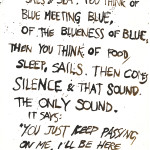 SAILS & SEA. YOU THINK OF
BLUE MEETING BLUE,
OF THE BLUENESS OF BLUE,
THEN YOU THINK OF FOOD,
SLEEP, SAILS. THEN COMES
SILENCE & THAT SOUND.
THE ONLY SOUND.
IT SAYS:
"YOU JUST KEEP PASSING
ON ME. I'LL BE HERE